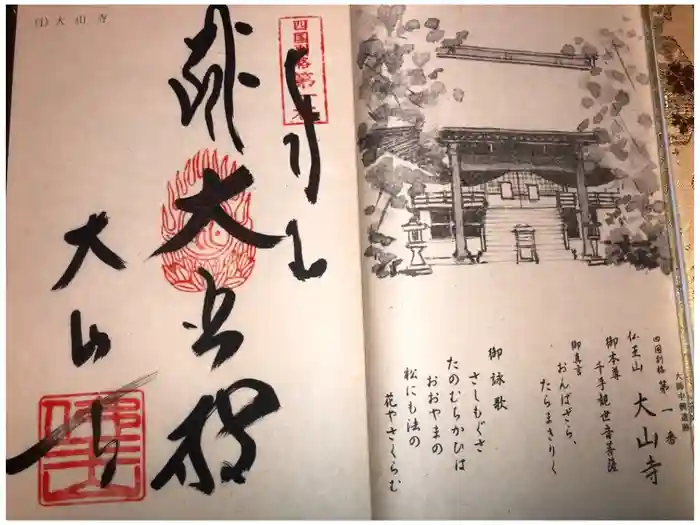 (1)大山寺
奉拝
大悲殿
大山寺
四国別格第一番
大師中興遺跡
四国別格 第一番
仏王山 大山寺
御本尊
千手観世音菩薩
御真言
おんばざら、
たらまきりく
御詠歌
さしもぐさ
たのむちかひは
おおやまの
松にも法の
花やさくらむ